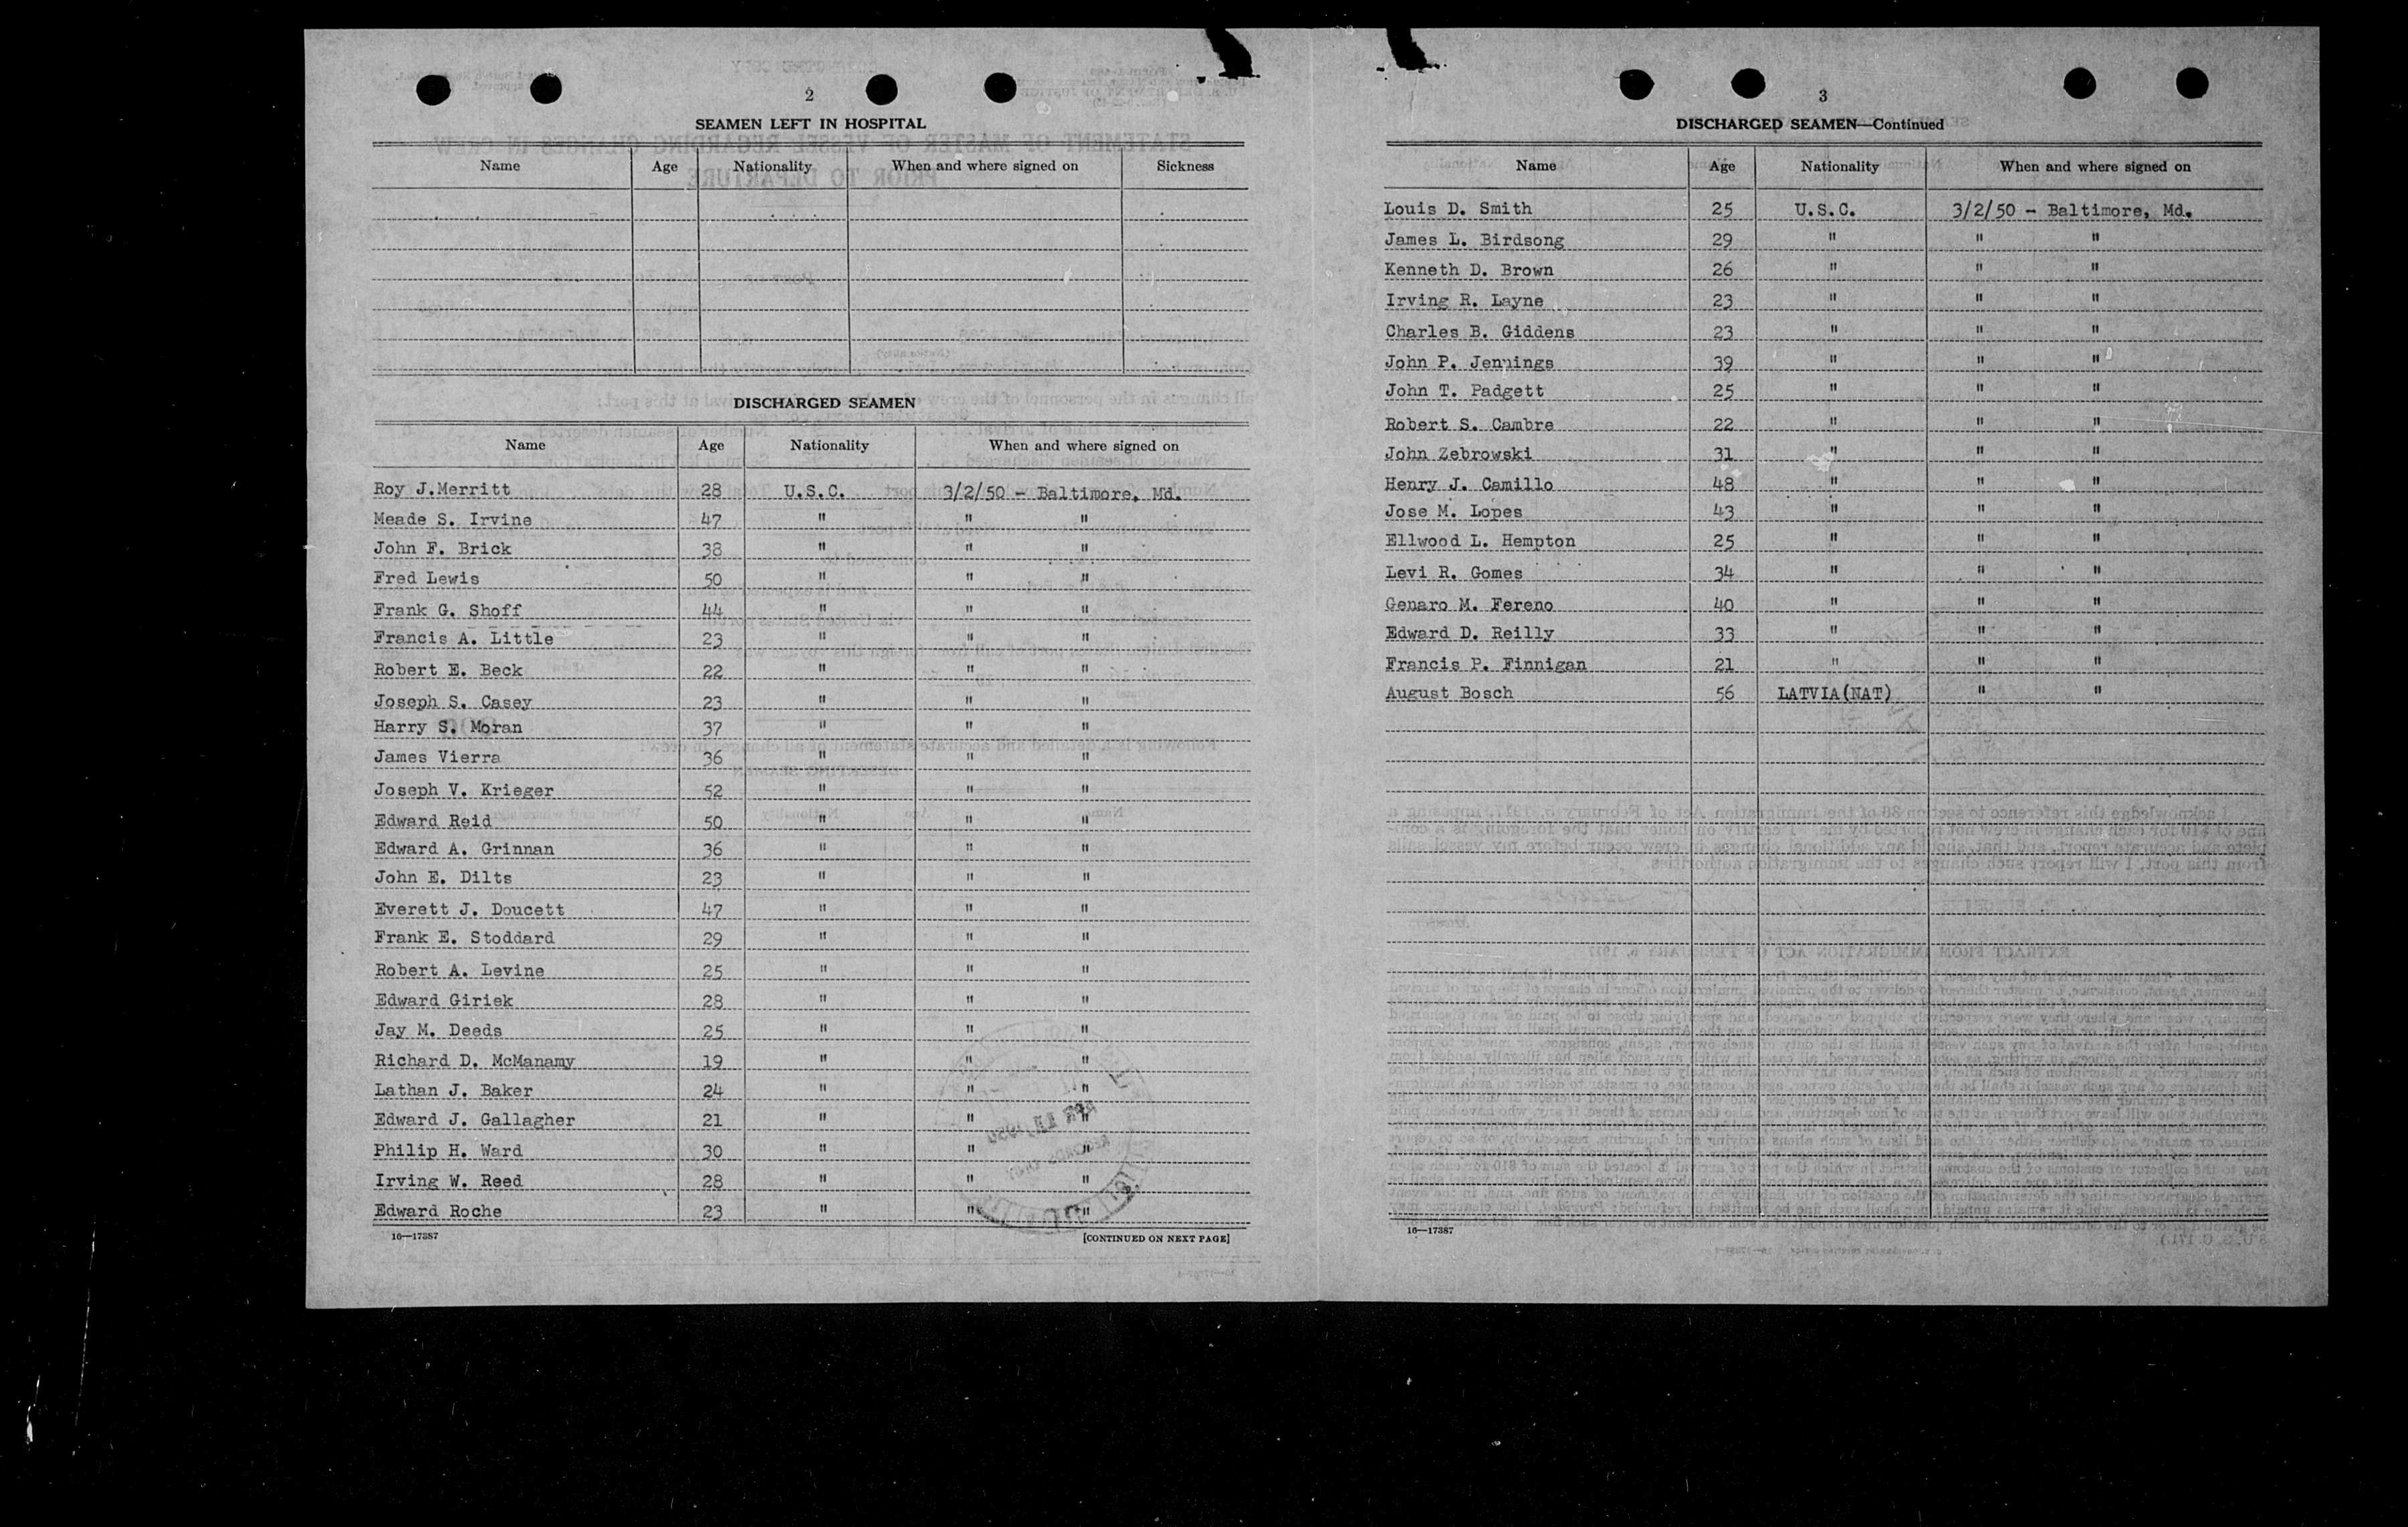 2
SEAMEN LEFT IN HOSPITAL
Name Age Nationality When and where signed on Sickness
DISCHARGED SEAMEN
Name Age Nationality When and where signed on
Roy J.Merritt 28 U.S.C. 3/2/50 - Baltimore, Md.
Meade S. Irvine 47 " " "
John F. Brick 38 " " "
Fred Lewis 50 " " "
Frank G. Shoff 44 " " "
Francis A. Little 23 " " "
Robert E. Beck 22 " " "
Joseph S. Casey 23 " " "
Harry S. Moran 37 " " "
James Vierra 36 " " "
Joseph V. Krieger 52 " " "
Edward Reid 50 " " "
Edward A. Grinnan 36 " " "
John E. Dilts 23 " " "
Everett J. Doucett 47 " " "
Frank E. Stoddard 29 " " "
Robert A. Levine 25 " " "
Edward Giriek 28 " " "
Jay M. Deeds 25 " " "
Richard D. McManamy 19 " " "
Lathan J. Baker 24 " " "
Edward J. Gallagher 21 " " "
Philip H. Ward 30 " " "
Irving W. Reed 28 " " "
Edward Roche 23 " " "
16—17387 [CONTINUED ON NEXT PAGE]
3
DISCHARGED SEAMEN—Continued
Name Age Nationality When and where signed on
Louis D. Smith 25 U.S.C. 3/2/50 - Baltimore, Md.
James L. Birdsong 29 " " "
Kenneth D. Brown 26 " " "
Irving R. Layne 23 " " "
Charles B. Giddens 23 " " "
John P. Jennings 39 " " "
John T. Padgett 25 " " "
Robert S. Cambre 22 " " "
John Zebrowski 31 " " "
Henry J. Camillo 48 " " "
Jose M. Lopes 43 " " "
Ellwood L. Hempton 25 " " "
Levi R. Gomes 34 " " "
Genaro M. Fereno 40 " " "
Edward D. Reilly 33 " " "
Francis P. Finnigan 21 " " "
August Bosch 56 LATVIA(NAT) " "
16—17387